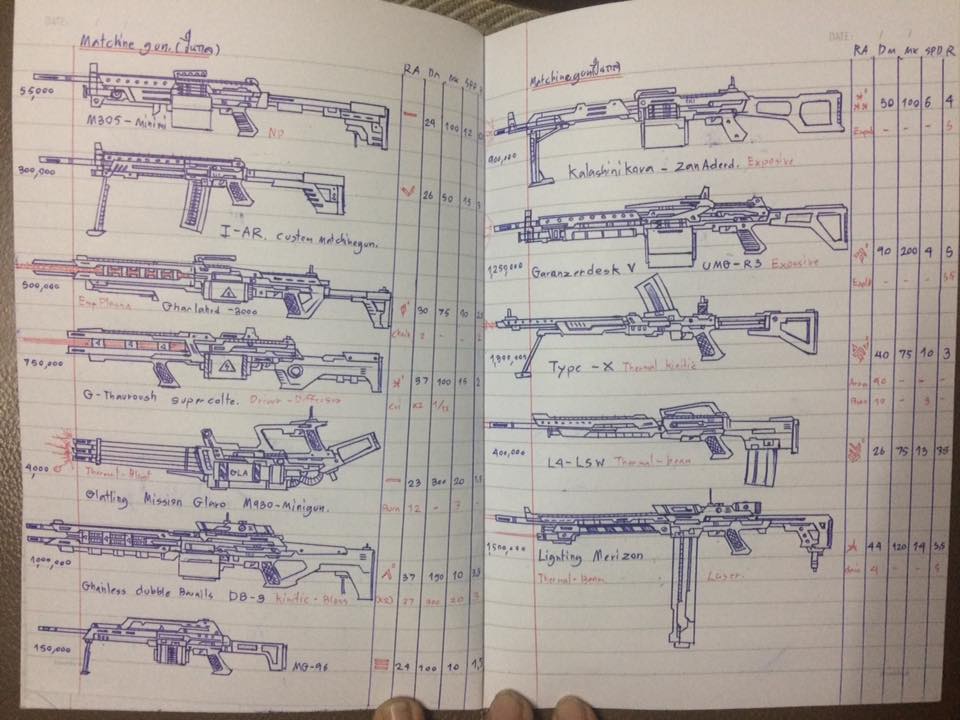 DATE:
Matchine gun. (ปืนกล)
RA Dm Mx SPD
55,000
M305 - Minimi
NP
24 100 12
300,000
I-AR. Custom Matchinegun.
26 50 15
500,000
Emp Plasma
Gharlaherd - 3000
30 75 10
2 - -
750,000
G-Thauroush supercolte.
37 100 15 2
cri x2 1/15
4,000
Thermal-Blast
GLA
Glatling Mission Glaro M930-Minigun.
23 300 20
Burn 12 - 3
1000,000
Ghanless dubble Bwalls DB-9 kinitic - Blass
37 150 10
(X2) 27 300 20 3
150,000
MG-96
24 100 10 1,5
DATE: / /
Matchinegun ปืนกล
RA Dm Mx SPD R
900,000
Kalashinikova - ZanAderd. Exposive
50 100 6 4
Expl - - - 5
1,250,000
Garanzerdesk V UMG-R3 Exposive
90 200 4 5
Expl - - - 5
Type - X Thermal kinitic
40 75 10 3
90 - - -
Burn 10 - 3 -
400,000
L4-LSW Thermal-beam
26 75 13 35
1,500,000
Lighting Merizon
Thermal-Beam Laser.
44 120 14 35
4 - - 5